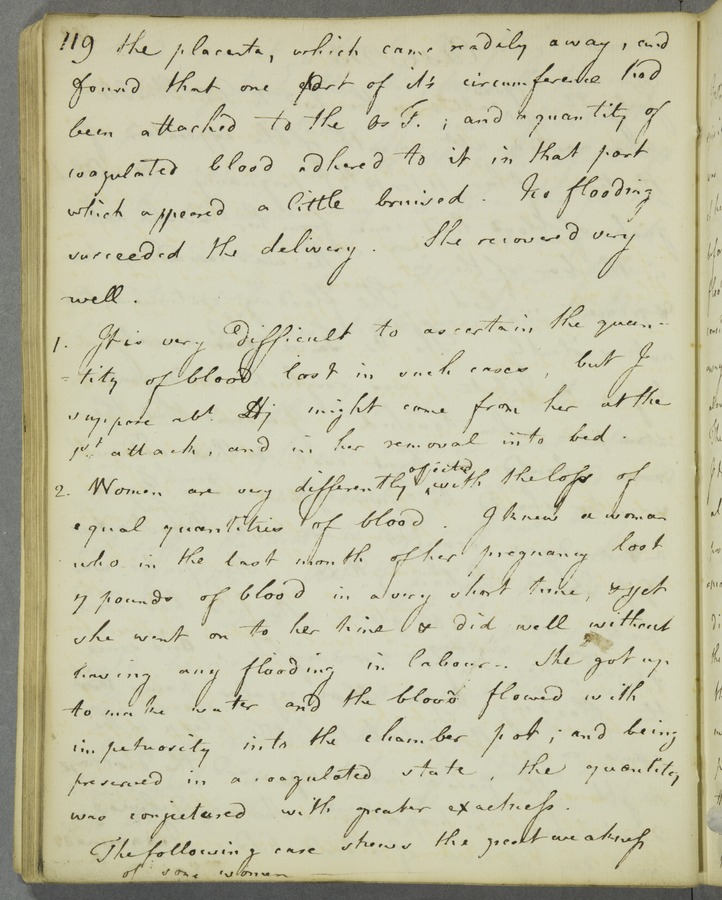 119 the placenta, which came readily away, and
found that one part of it's circumference had
been attached to the Os T. ; and a quantity of
coagulated blood adhered to it in that part
which appeared a little bruised. No flooding
succeeded the delivery. She recovered very
well.
1. It is very difficult to ascertain the quan-
-tity of blood lost in such cases, but I
suppose abt. might come from her at the
1st attack, and in her removal into bed.
2. Women are very differently affected with the loss of
equal quantities of blood. I knew a woman
who in the last month of her pregnancy lost
7 pounds of blood in a very short time, & yet
she went on to her time & did well without
having any flooding in labour. She got up
to make water and the blood flowed with
impetuosity into the chamber pot ; and being
preserved in a coagulated state, the quantity
was conjectured with greater exactness.
The following case shews the great weakness
of some women